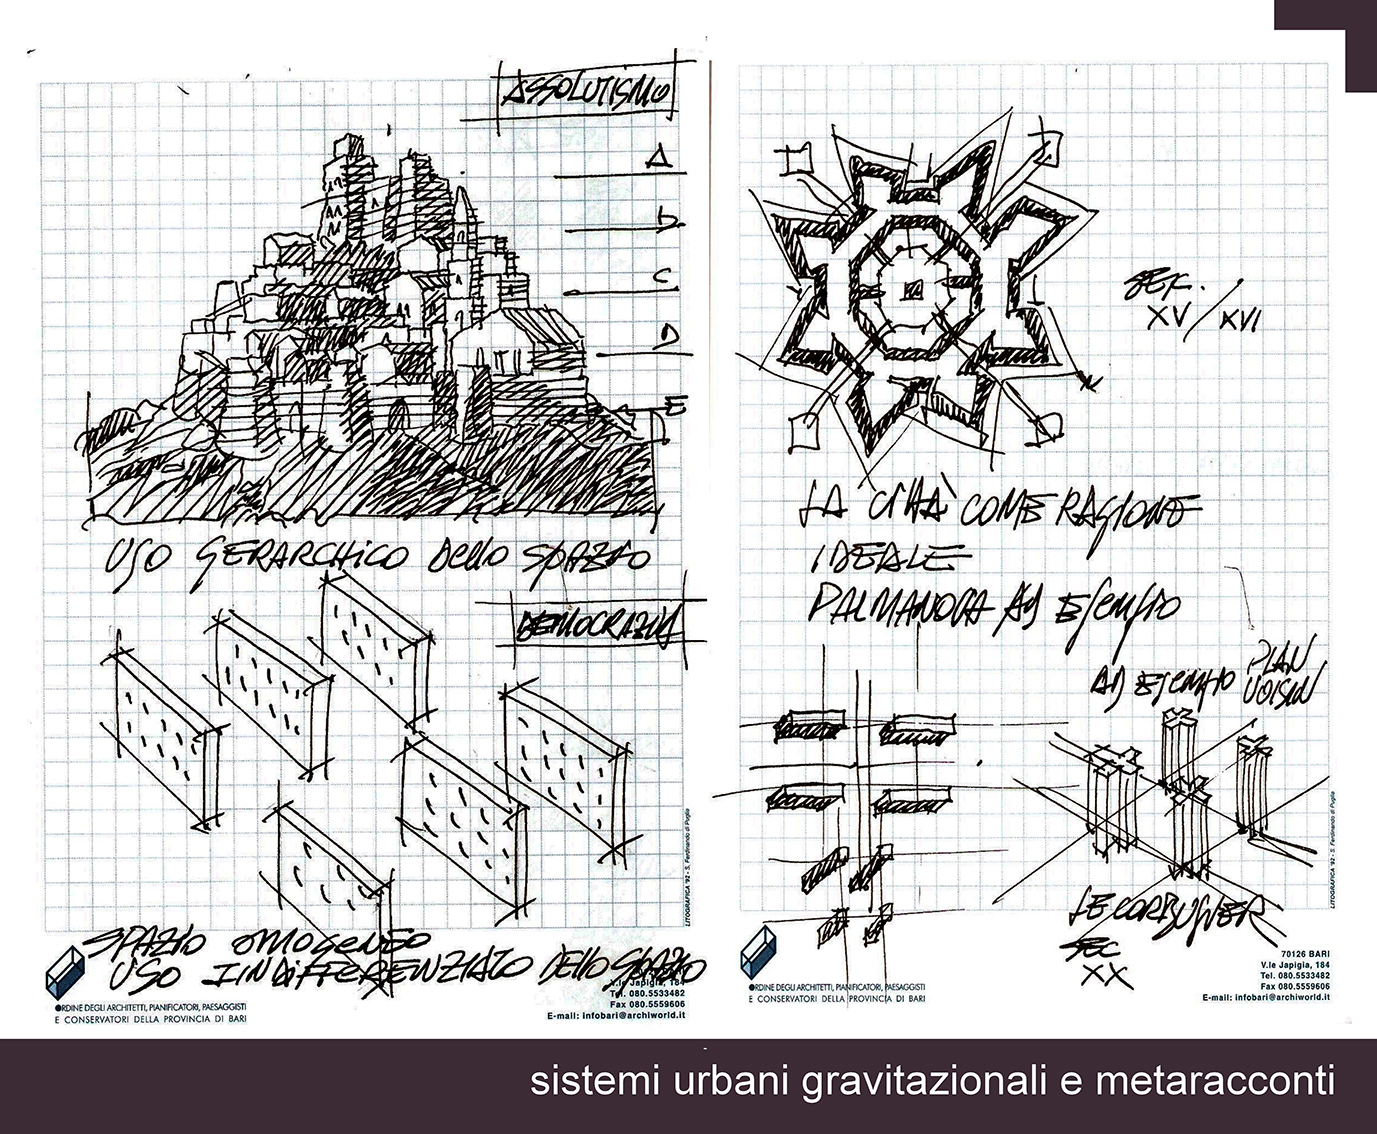 ASSOLUTISMO
A
b
C
D
E
USO GERARCHICO DELLO SPAZIO
DEMOCRAZIA
SPAZIO OMOGENEO
USO INDIFFERENZIATO DELLO SPAZIO
ORDINE DEGLI ARCHITETTI, PIANIFICATORI, PAESAGGISTI
E CONSERVATORI DELLA PROVINCIA DI BARI
V.le Japigia, 184
Tel. 080.5533482
Fax 080.5559606
E-mail: infobari@archiworld.it
LITOGRAFICA '92 - S. Ferdinando di Puglia
SEC.
XV / XVI
LA CITTÀ COME RAGIONE
IDEALE
PALMANOVA AD ESEMPIO
AD ESEMPIO PLAN
VOISIN
LE CORBUSIER
SEC
XX
ORDINE DEGLI ARCHITETTI, PIANIFICATORI, PAESAGGISTI
E CONSERVATORI DELLA PROVINCIA DI BARI
70126 BARI
V.le Japigia, 184
Tel. 080.5533482
Fax 080.5559606
E-mail: infobari@archiworld.it
LITOGRAFICA '92 - S. Ferdinando di Puglia
sistemi urbani gravitazionali e metaracconti